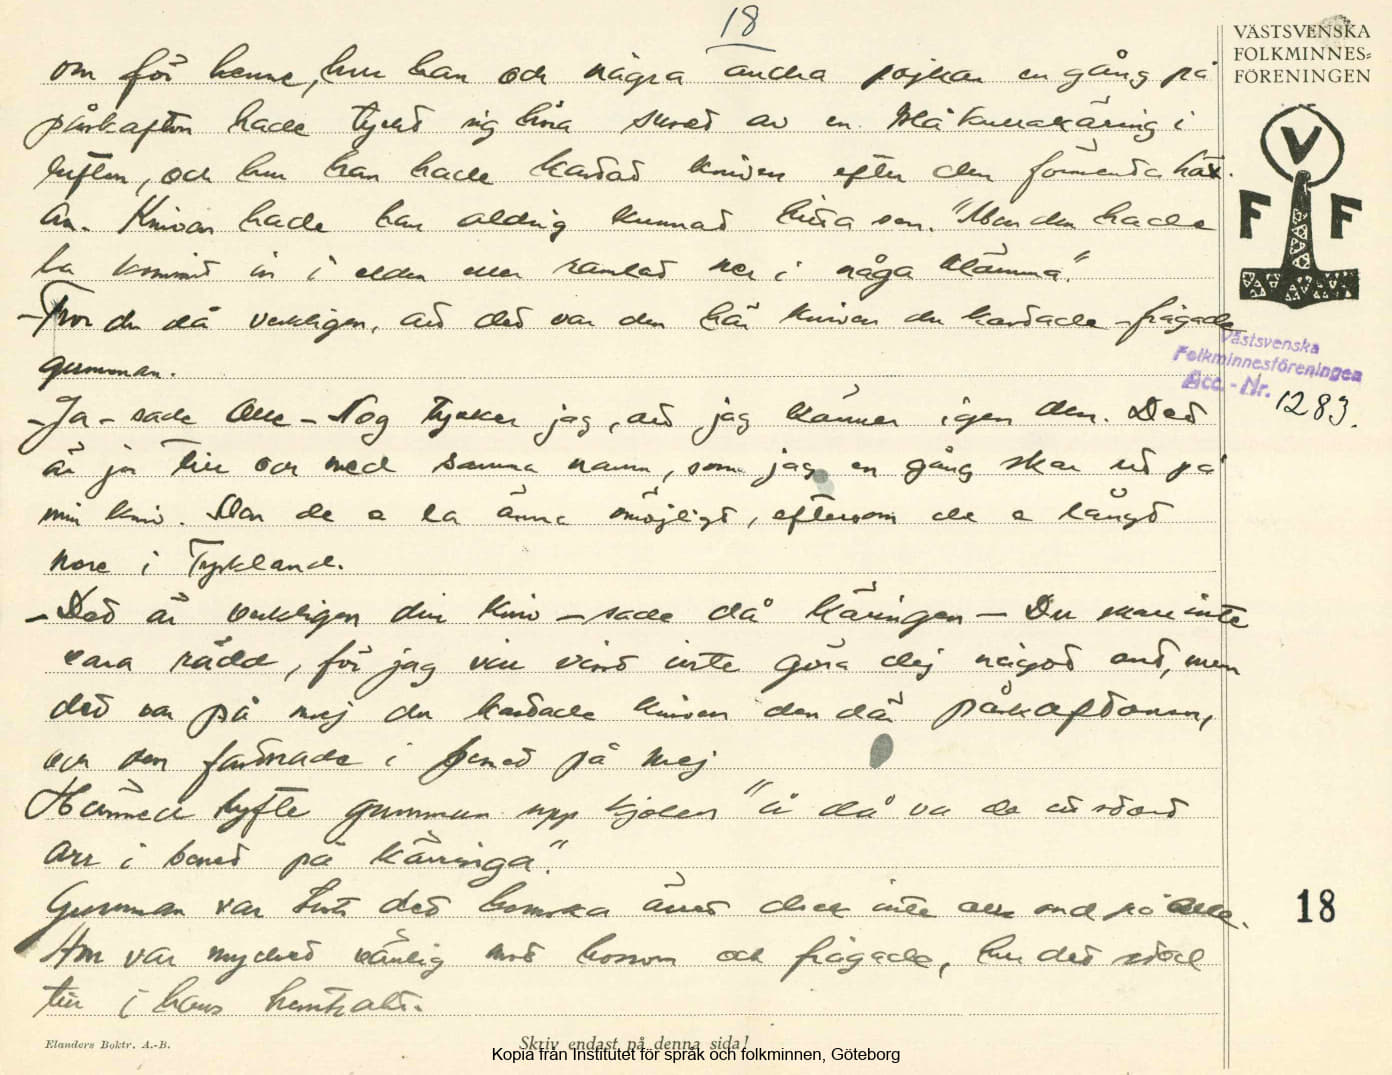 18
VÄSTSVENSKA
FOLKMINNES=
FÖRENINGEN
V
F F
om för henne, hur han och några andra pojkar en gång på
påskafton hade tyckt sig höra suset av en Blåkullakäring i
luften, och hur han hade kastat kniven efter den förmenta häx-
an. Kniven hade han aldrig kunnat hitta sen. "Men den hade
la kommit in i elden eller ramlat ner i någa klämma".
-Tror du då verkligen, att det var den här kniven du kastade - frågade
gumman.
-Ja - sade Olle - Nog tycker jag, att jag känner igen den. Det
är ju till och med samma namn, som jag en gång skar ut på
min kniv. Men de e la änna omöjligt, eftersom de e långt
nore i Tyskland.
- Det är verkligen din kniv - sade då käringen - Du skall inte
vara rädd, för jag vill visst inte göra dej något ont, men
det var på mej du kastade kniven den där påskaftonen,
och den fastnade i benet på mej
Härmed lyfte gumman upp kjolen "å då va de ett stort
arr i benet på kärringa".
Gumman var trots det hemska ärret dock inte alls ond på Olle.
Hon var mycket vänlig mot honom och frågade, hur det stod
till i hans hemtrakt.
Västsvenska
Folkminnesföreningen
Acc. - Nr. 1283.
18
Elanders Boktr. A.-B.
Skriv endast på denna sida!
Kopia från Institutet för språk och folkminnen, Göteborg